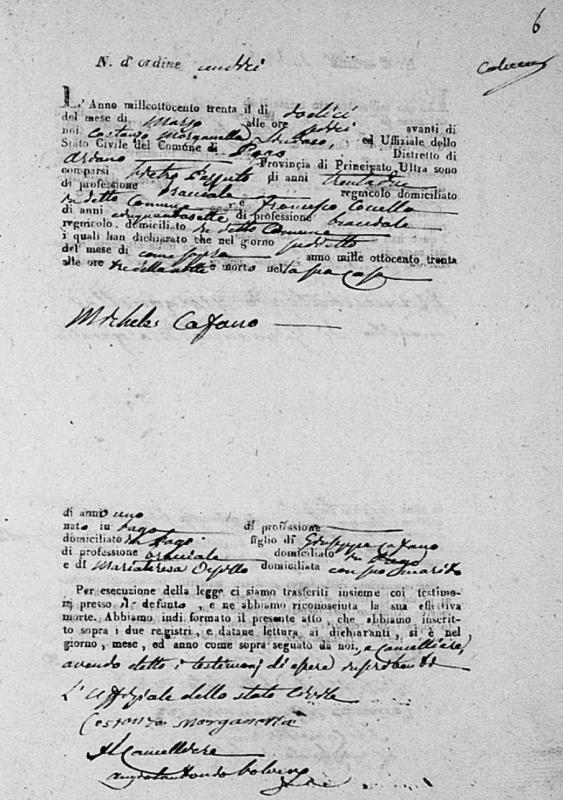 6
N. d'ordine
L'Anno millcottocento trenta il di dodici
del mese di Marzo alle ore avanti di
noi Costanzo Morganella Sindaco, ed Uffiziale dello
Stato Civile del Comune di Pago Distretto di
Provincia di Principato Ultra sono
comparsi Pietro di anni trentadue
di professione bracciale regnicolo domiciliato
in detto Comune, e Francesco
di anni cinquantasette di professione bracciale
regnicolo, domiciliato in detto Comune
i quali han dichiarato che nel giorno
del mese di come sopra anno mille ottocento trenta
alle ore è morto nella sua casa
Michele Cafano
di anni uno
nato in Pago di professione
domiciliato in Pago figlio di Giuseppe Cafano
di professione bracciale domiciliato in Pago
e di Mariateresa domiciliata con suo marito
Per esecuzione della legge ci siamo trasferiti insieme coi testimo-
nj presso il defunto, e ne abbiamo riconosciuta la sua effettiva
morte. Abbiamo indi formato il presente atto, che abbiamo inscrit-
to sopra i due registri, e datane lettura ai dichiaranti, si è nel
giorno, mese, ed anno come sopra segnato da noi, e Cancelliere,
avendo detto i testimonj di
L'Uffiziale dello stato Civile
Costanzo Morganella
Il Cancelliere